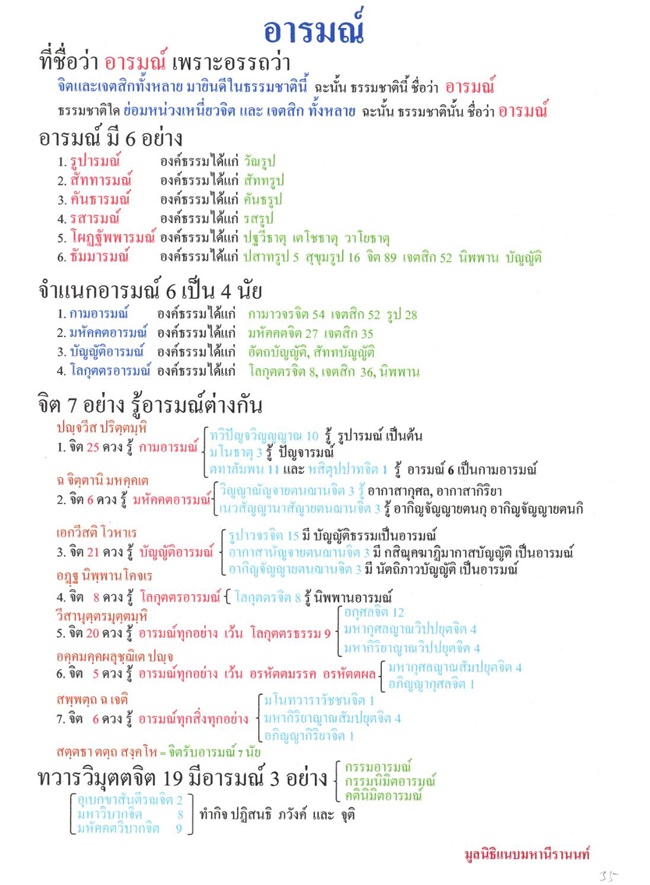 อารมณ์
ที่ชื่อว่า อารมณ์ เพราะอรรถว่า
จิตและเจตสิกทั้งหลาย มายินดีในธรรมชาตินี้ ฉะนั้น ธรรมชาตินี้ ชื่อว่า อารมณ์
ธรรมชาติใด ย่อมหน่วงเหนี่ยวจิต และ เจตสิก ทั้งหลาย ฉะนั้น ธรรมชาตินั้น ชื่อว่า อารมณ์
อารมณ์ มี 6 อย่าง
1. รูปารมณ์ องค์ธรรมได้แก่ วัณรูป
2. สัททารมณ์ องค์ธรรมได้แก่ สัททรูป
3. คันธารมณ์ องค์ธรรมได้แก่ คันธรูป
4. รสารมณ์ องค์ธรรมได้แก่ รสรูป
5. โผฏฐัพพารมณ์ องค์ธรรมได้แก่ ปฐวีธาตุ เตโชธาตุ วาโยธาตุ
6. ธัมมารมณ์ องค์ธรรมได้แก่ ปสาทรูป 5 สุขุมรูป 16 จิต 89 เจตสิก 52 นิพพาน บัญญัติ
จำแนกอารมณ์ 6 เป็น 4 นัย
1. กามอารมณ์ องค์ธรรมได้แก่ กามาวจรจิต 54 เจตสิก 52 รูป 28
2. มหัคคตอารมณ์ องค์ธรรมได้แก่ มหัคคตจิต 27 เจตสิก 35
3. บัญญัติอารมณ์ องค์ธรรมได้แก่ อัตถบัญญัติ, สัททบัญญัติ
4. โลกุตตรอารมณ์ องค์ธรรมได้แก่ โลกุตตรจิต 8, เจตสิก 36, นิพพาน
จิต 7 อย่าง รู้อารมณ์ต่างกัน
ปญฺจวีส ปริตฺตมฺหิ
1. จิต 25 ดวง รู้ กามอารมณ์
ทวิปัญจวิญญาณ 10 รู้ รูปารมณ์ เป็นต้น
มโนธาตุ 3 รู้ ปัญจารมณ์
ตทาลัมพน 11 และ หสิตุปปาทจิต 1 รู้ อารมณ์ 6 เป็นกามอารมณ์
ฉ จิตฺตานิ มหคฺคเต
2. จิต 6 ดวง รู้ มหัคคตอารมณ์
วิญญาณัญจายตนฌานจิต 3 รู้ อากาสากุสล, อากาสากิริยา
เนวสัญญานาสัญญายตนฌานจิต 3 รู้ อากิญจัญญายตนกุ อากิญจัญญายตนกิ
เอกวีสติ โวหาเร
3. จิต 21 ดวง รู้ บัญญัติอารมณ์
รูปาวจรจิต 15 มี บัญญัติธรรมเป็นอารมณ์
อากาสานัญจายตนฌานจิต 3 มี กสิณุคฆาฏิมากาสบัญญัติ เป็นอารมณ์
อากิญจัญญายตนฌานจิต 3 มี นัตถิภาวบัญญัติ เป็นอารมณ์
อฏฺฐ นิพฺพานโคจเร
4. จิต 8 ดวง รู้ โลกุตตรอารมณ์ โลกุตตรจิต 8 รู้ นิพพานอารมณ์
วีสานุตฺตรมุตฺตมฺหิ
5. จิต 20 ดวง รู้ อารมณ์ทุกอย่าง เว้น โลกุตตรธรรม 9
อกุศลจิต 12
มหากุศลญาณวิปปยุตจิต 4
มหากิริยาญาณวิปปยุตจิต 4
อคฺคมคฺคผลุชฺฌิเต ปญฺจ
6. จิต 5 ดวง รู้ อารมณ์ทุกอย่าง เว้น อรหัตตมรรค อรหัตตผล
มหากุศลญาณสัมปยุตจิต 4
อภิญญากุศลจิต 1
สพฺพตฺถ ฉ เจติ
7. จิต 6 ดวง รู้ อารมณ์ทุกสิ่งทุกอย่าง
มโนทวาราวัชชนจิต 1
มหากิริยาญาณสัมปยุตจิต 4
อภิญญากิริยาจิต 1
สตฺตธา ตตฺถ สงฺคโห = จิตรับอารมณ์ 7 นัย
ทวารวิมุตตจิต 19 มีอารมณ์ 3 อย่าง
กรรมอารมณ์
กรรมนิมิตอารมณ์
คตินิมิตอารมณ์
อุเบกขาสันตีรณจิต 2
มหาวิบากจิต 8
มหัคคตวิบากจิต 9
ทำกิจ ปฏิสนธิ ภวังค์ และ จุติ
มูลนิธิแนบมหานีรานนท์
35